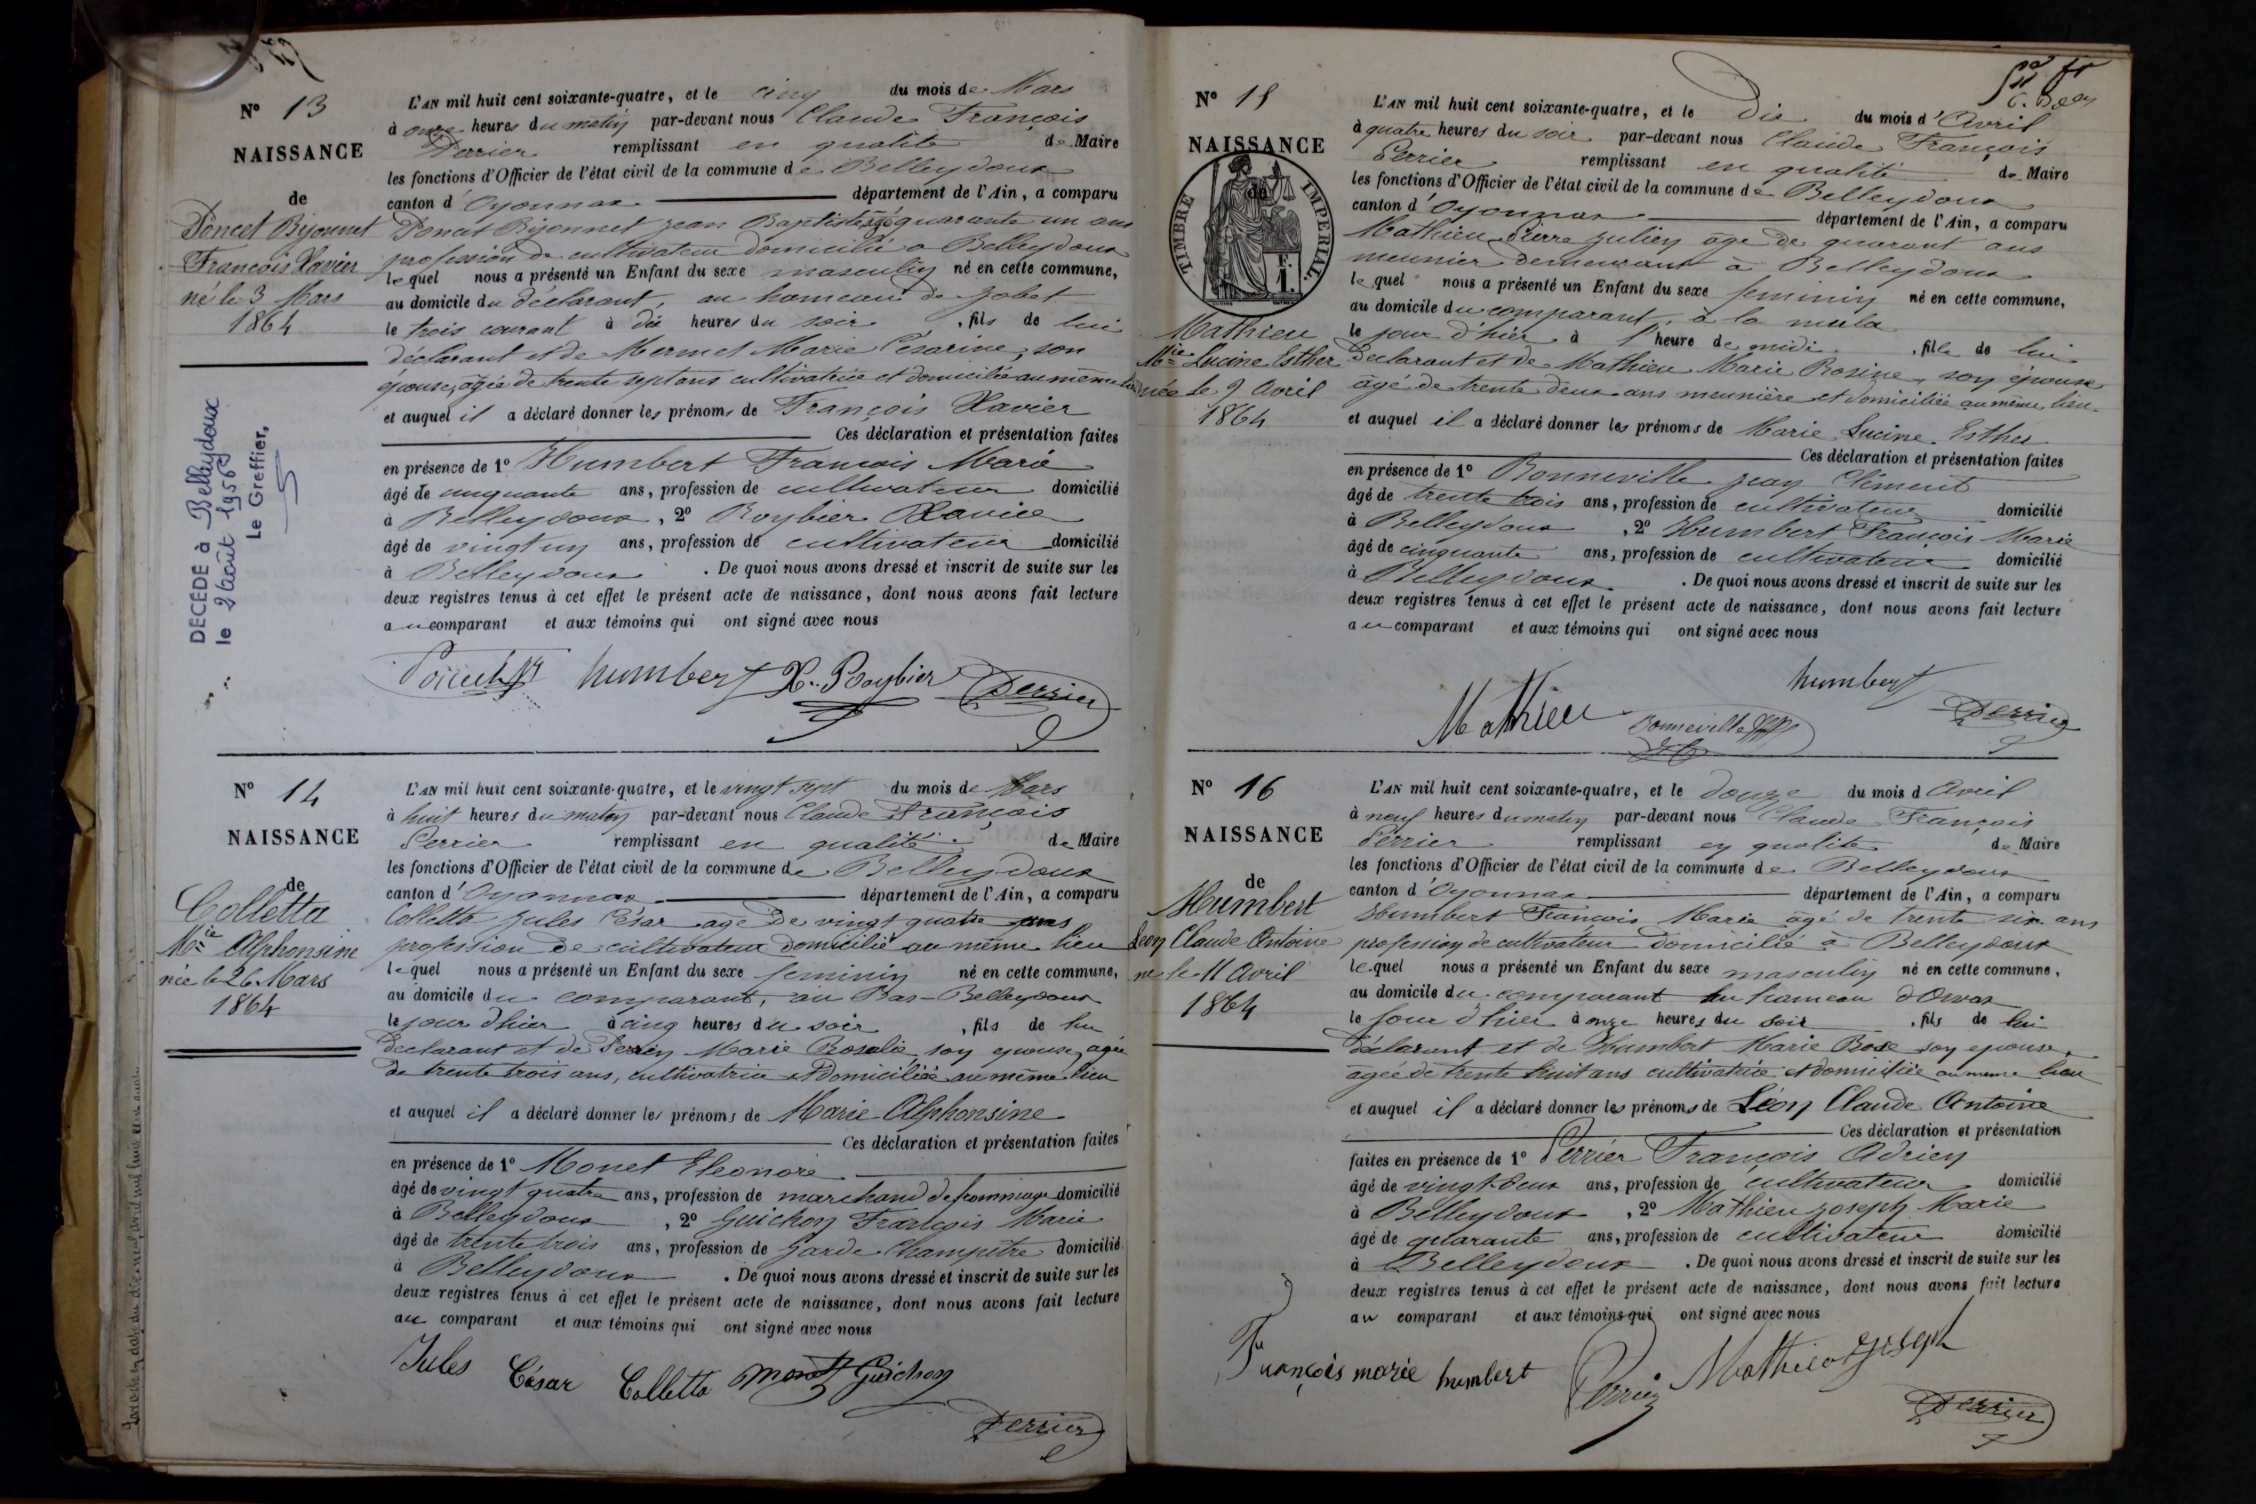 N° 13
NAISSANCE
de
Poncet Bijonnet
François Xavier
né le 3 Mars
1864
DÉCÉDÉ à Belleydoux
le 2 Août 1956
Le Greffier,
L'AN mil huit cent soixante-quatre, et le cinq du mois de Mars
à onze heures du matin par-devant nous Claude François
Perrier remplissant en qualité de Maire
les fonctions d'Officier de l'état civil de la commune de Belleydoux
canton d'Oyonnax département de l'Ain, a comparu
Poncet Bijonnet Jean Baptiste âgé quarante un ans
profession de cultivateur domicilié a Belleydoux
lequel nous a présenté un Enfant du sexe masculin né en cette commune,
au domicile du déclarant, au hameau de Gobet
le trois courant à dix heures du soir, fils de lui
déclarant et de Mermet Marie Césarine, son
épouse, âgée de trente sept ans cultivatrice et domiciliée au même lieu
et auquel il a déclaré donner les prénoms de François Xavier
Ces déclaration et présentation faites
en présence de 1° Humbert François Marie
âgé de cinquante ans, profession de cultivateur domicilié
à Belleydoux, 2° Roybier Xavier
âgé de vingt un ans, profession de cultivateur domicilié
à Belleydoux. De quoi nous avons dressé et inscrit de suite sur les
deux registres tenus à cet effet le présent acte de naissance, dont nous avons fait lecture
au comparant et aux témoins qui ont signé avec nous
Poncet humbert X. Roybier Perrier
N° 14
NAISSANCE
de
Colletta
Mie Alphonsine
née le 26 Mars
1864
L'AN mil huit cent soixante-quatre, et le vingt sept du mois de Mars
à huit heures du matin par-devant nous Claude François
Perrier remplissant en qualité de Maire
les fonctions d'Officier de l'état civil de la commune de Belleydoux
canton d'Oyonnax département de l'Ain, a comparu
Colletta Jules César agé de vingt quatre ans
profession de cultivateur domicilié au même lieu
lequel nous a présenté un Enfant du sexe feminin né en cette commune,
au domicile du comparant, au Bas-Belleydoux
le jour d'hier à cinq heures du soir, fils de lui
déclarant et de Perrin Marie Rosalie son epouse, agée
de trente trois ans, cultivatrice et domiciliée au même lieu
et auquel il a déclaré donner les prénoms de Marie Alphonsine
Ces déclaration et présentation faites
en présence de 1° Monet Eleonore
âgé de vingt quatre ans, profession de marchand de frommage domicilié
à Belleydoux, 2° Guichon François Marie
âgé de trente trois ans, profession de garde champêtre domicilié
à Belleydoux. De quoi nous avons dressé et inscrit de suite sur les
deux registres tenus à cet effet le présent acte de naissance, dont nous avons fait lecture
au comparant et aux témoins qui ont signé avec nous
Jules César Colletta Monet Guichon
Perrier
N° 15
NAISSANCE
de
TIMBRE IMPERIAL
1 F.
Mathieu
Mie Lucine Esther
née le 9 Avril
1864
L'AN mil huit cent soixante-quatre, et le Dix du mois d'Avril
à quatre heures du soir par-devant nous Claude François
Perrier remplissant en qualité de Maire
les fonctions d'Officier de l'état civil de la commune de Belleydoux
canton d'Oyonnax département de l'Ain, a comparu
Mathieu Pierre Julien âgé de quarant ans
meunier demeurant à Belleydoux
lequel nous a présenté un Enfant du sexe feminin né en cette commune,
au domicile du comparant, à la mula
le jour d'hier à 1 heure de midi, fille de lui
declarant et de Mathieu Marie Rosine, son épouse
âgé de trente deux ans meunière et domiciliée au même lieu.
et auquel il a déclaré donner les prénoms de Marie Lucine Esther
Ces déclaration et présentation faites
en présence de 1° Bonneville Jean Clément
âgé de trente trois ans, profession de cultivateur domicilié
à Belleydoux, 2° Humbert François Marie
âgé de cinquante ans, profession de cultivateur domicilié
à Belleydoux. De quoi nous avons dressé et inscrit de suite sur les
deux registres tenus à cet effet le présent acte de naissance, dont nous avons fait lecture
au comparant et aux témoins qui ont signé avec nous
humbert
Mathieu Bonneville Perrier
N° 16
NAISSANCE
de
Humbert
Léon Claude Antoine
né le 11 Avril
1864
L'AN mil huit cent soixante-quatre, et le douze du mois d Avril
à neuf heures du matin par-devant nous Claude François
Perrier remplissant en qualité de Maire
les fonctions d'Officier de l'état civil de la commune de Belleydoux
canton d'Oyonnax département de l'Ain, a comparu
Humbert François Marie âgé de trente six ans
profession de cultivateur domicilié à Belleydoux
lequel nous a présenté un Enfant du sexe masculin né en cette commune,
au domicile du comparant au hameau d'Orvaz
le jour d'hier à onze heures du soir, fils de lui
déclarant et de Humbert Marie Rose son epouse,
agée de trente huit ans cultivatrice et domiciliée au meme lieu
et auquel il a déclaré donner les prénoms de Léon Claude Antoine
Ces déclaration et présentation
faites en présence de 1° Perrier François Adrien
âgé de vingt-deux ans, profession de cultivateur domicilié
à Belleydoux, 2° Mathieu Joseph Marie
âgé de quarante ans, profession de cultivateur domicilié
à Belleydoux. De quoi nous avons dressé et inscrit de suite sur les
deux registres tenus à cet effet le présent acte de naissance, dont nous avons fait lecture
au comparant et aux témoins qui ont signé avec nous
François marie humbert Perrier Mathieu Joseph
Perrier